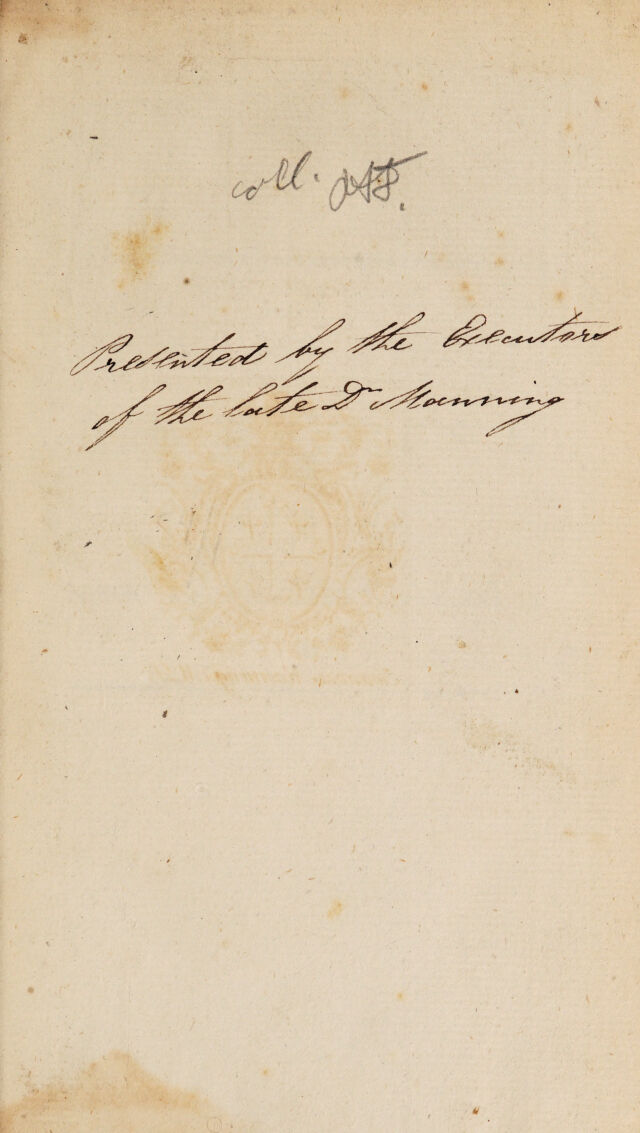 coll.
Presented by the Executors
of the late Dr Manning